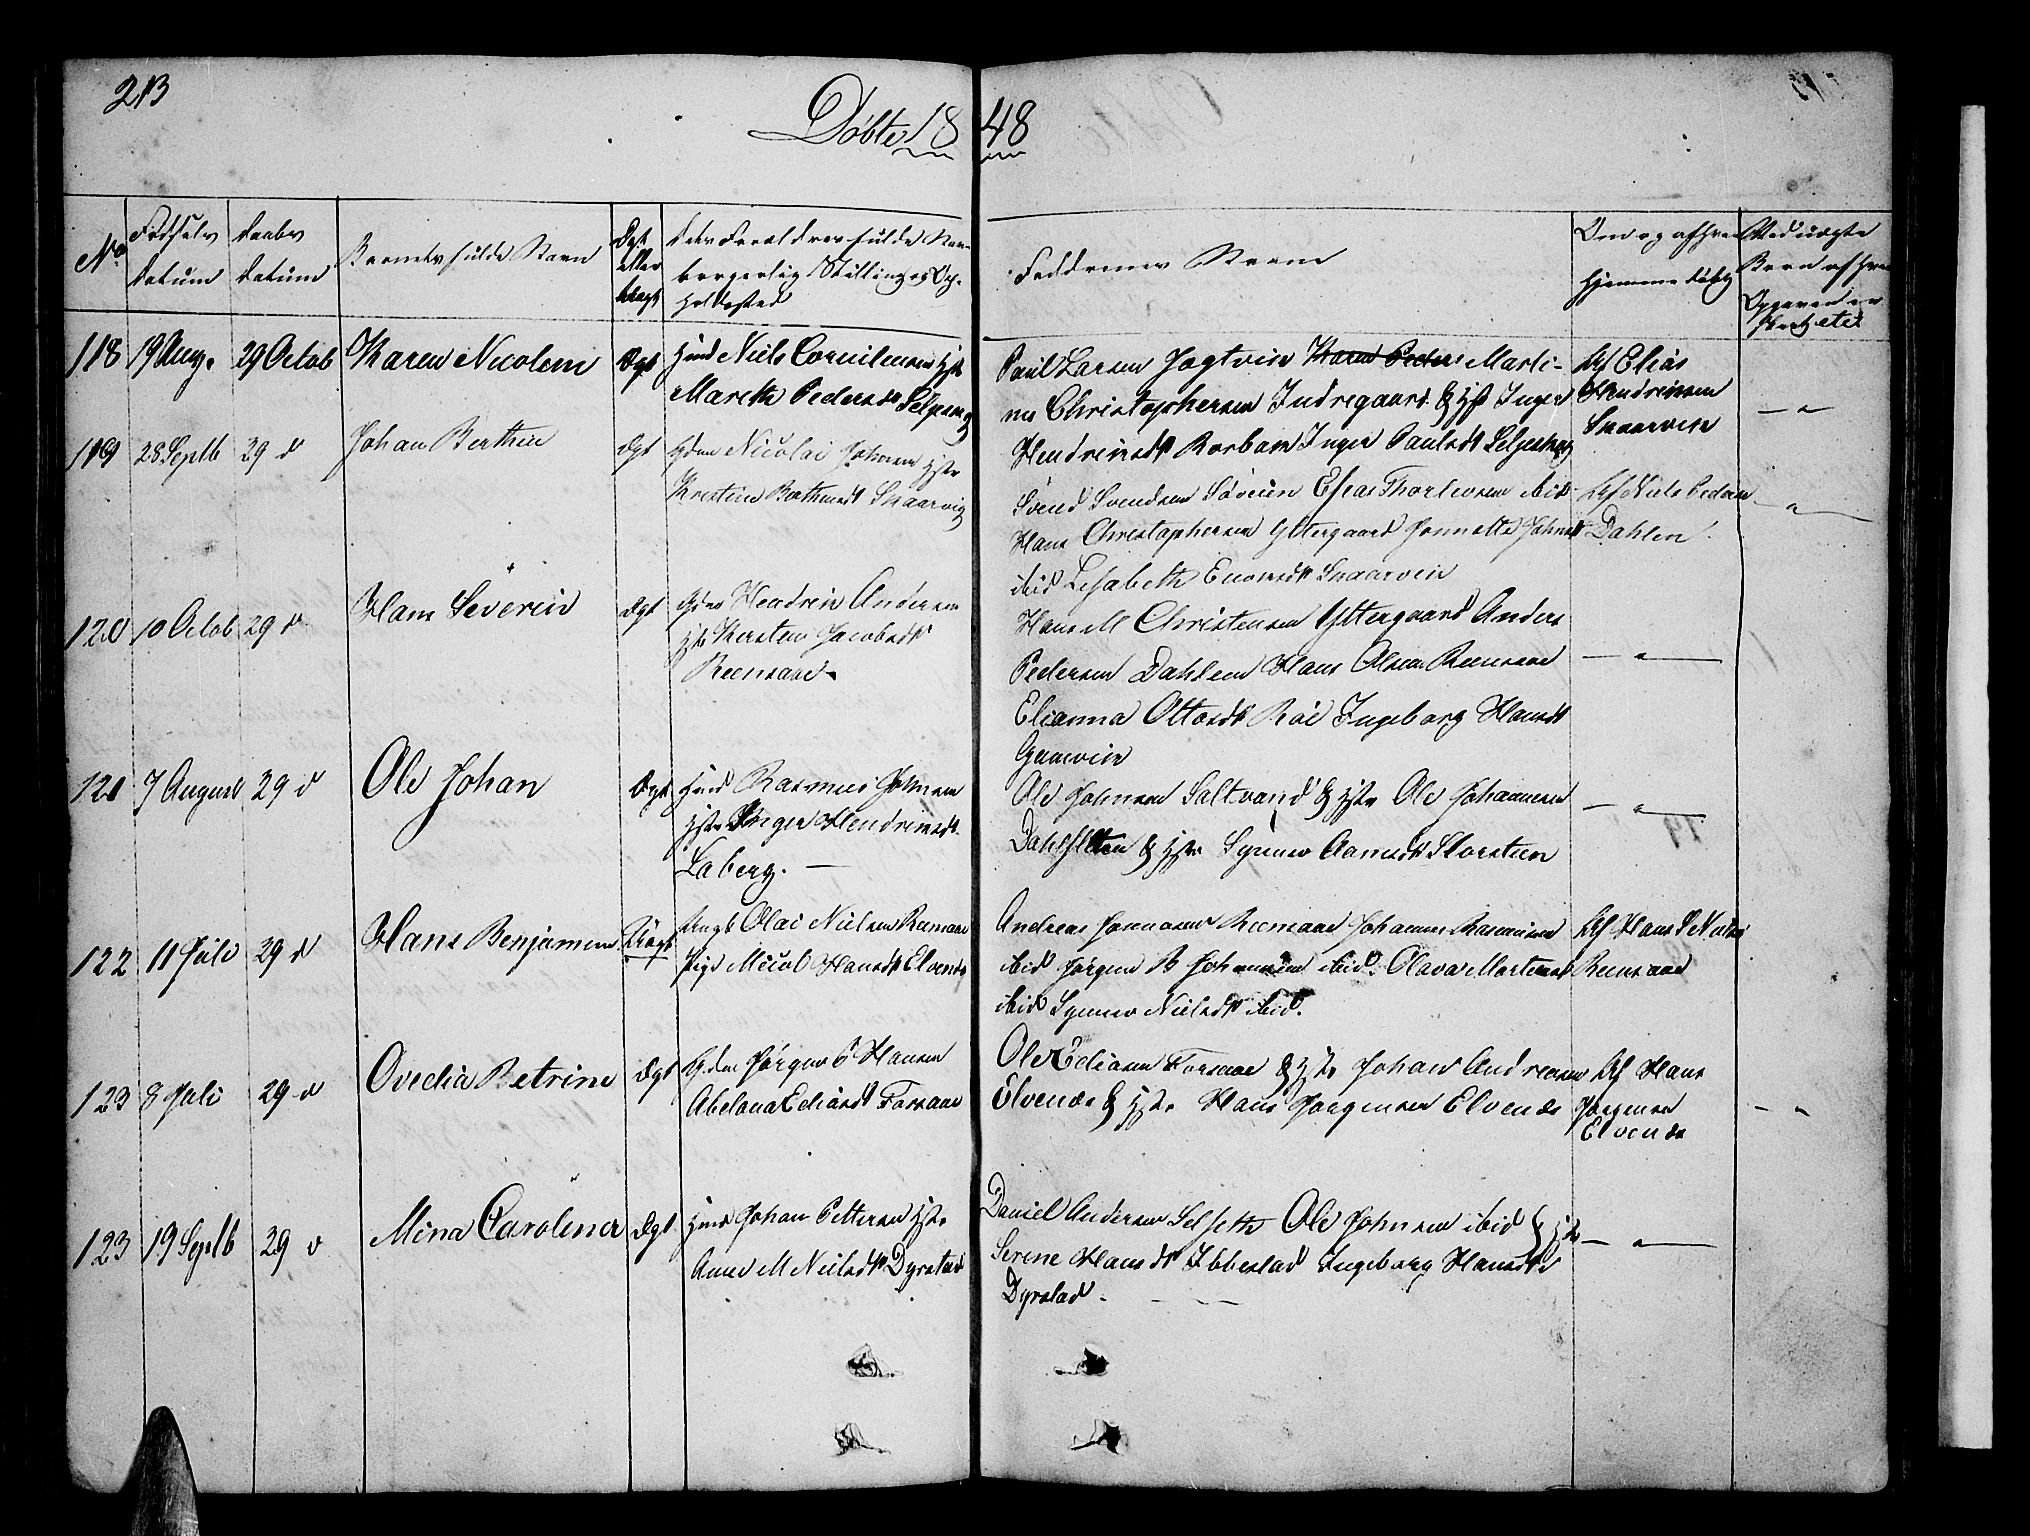 213
Døbte 1848
No
Fødsels Datum
Daabs Datum
Barnets fulde Navn
Ægt eller Uægt
Dets Forældres fulde Navn borgerlig Stilling og Opholdssted
Faddernes Navne
Om og af hvem hjemmedøbt
Ved uægte Børn af hvem Opgaven er
118 19 Aug. 29 Octob Karen Nicoline Ægt
Niels Corneliussen
Marethe Pedersdt Selseng
Paul Larsen Jagtvik Karen Peders Marti-
ne Christophersen Indregaard & Hst Inger
Hendriksdt Rorbak Inger Paulsdt Selseng
Af Elias
Hendriksen
Skaarvik
— " —
119 28 Septb 29 d Johan Berthin Ægt
Gdm Nicolai Johnsen Hst
Kirstine Berthsdt Skaarvig
Svend Svendsen Sövein Esias Thorlevsen ibid
Hans Christophersen Yttergaard Jonnetta Johnsdt
ibid Lisabeth Enoksdt Skaarvik
Af Niels Pedersen
Dahlen
— " —
120 10 Octob 29 d Hans Severin Ægt
Gdm Hendrik Andersen
Hst Kirsten Jacobsdt
Reensaae
Hans M Christensen Yttergaard Anders
Pedersen Dahlen Hans Olsen Reensaae
Elianna Ottosdt Röe Ingeborg Hansdt
— " —
121 7 August 29 d Ole Johan Ægt
Rasmus Johnsen
Hst Inger Hendriksdt
Laberg. —
Ole Johnsen Saltvand & Hst Ole Johannesen
Dahlsletten & Hst Synneve Aanesdt Storsteen
— " —
122 11 Juli 29 d Hans Benjamin Uægt
Ungk Olai Nielsen Reensaae
Pige Micol Hansdt Elvenæs
Andreas Jonassen Reensaae Johannes Rasmussen
ibid Jørgen B Johannesen ibid. Olava Martensdt
ibid Synnev Nielsdt ibid.
Af Hans S Nielsen
Reensaae
123 8 Juli 29 d Ovedia Petrine Ægt
Gdm Jørgen P Hansen
Abelona Ediasdt Forsaae
Ole Ediasen Forsaae & Hst Johan Andreasen
Elvenæs & Hst Hans Jørgensen Elvenæs
Af Hans
Jørgensen
Elvenæs
— " —
123 19 Septb 29 d Mina Carolina Ægt
Johan Pettersen Hst
Anne M Nielsdt Dyrstad
Daniel Andersen Selseth Ole Johnsen ibid & Hst
Serene Hansdt Ibbestad Ingeborg Hansdt
Dyrstad.
— " —